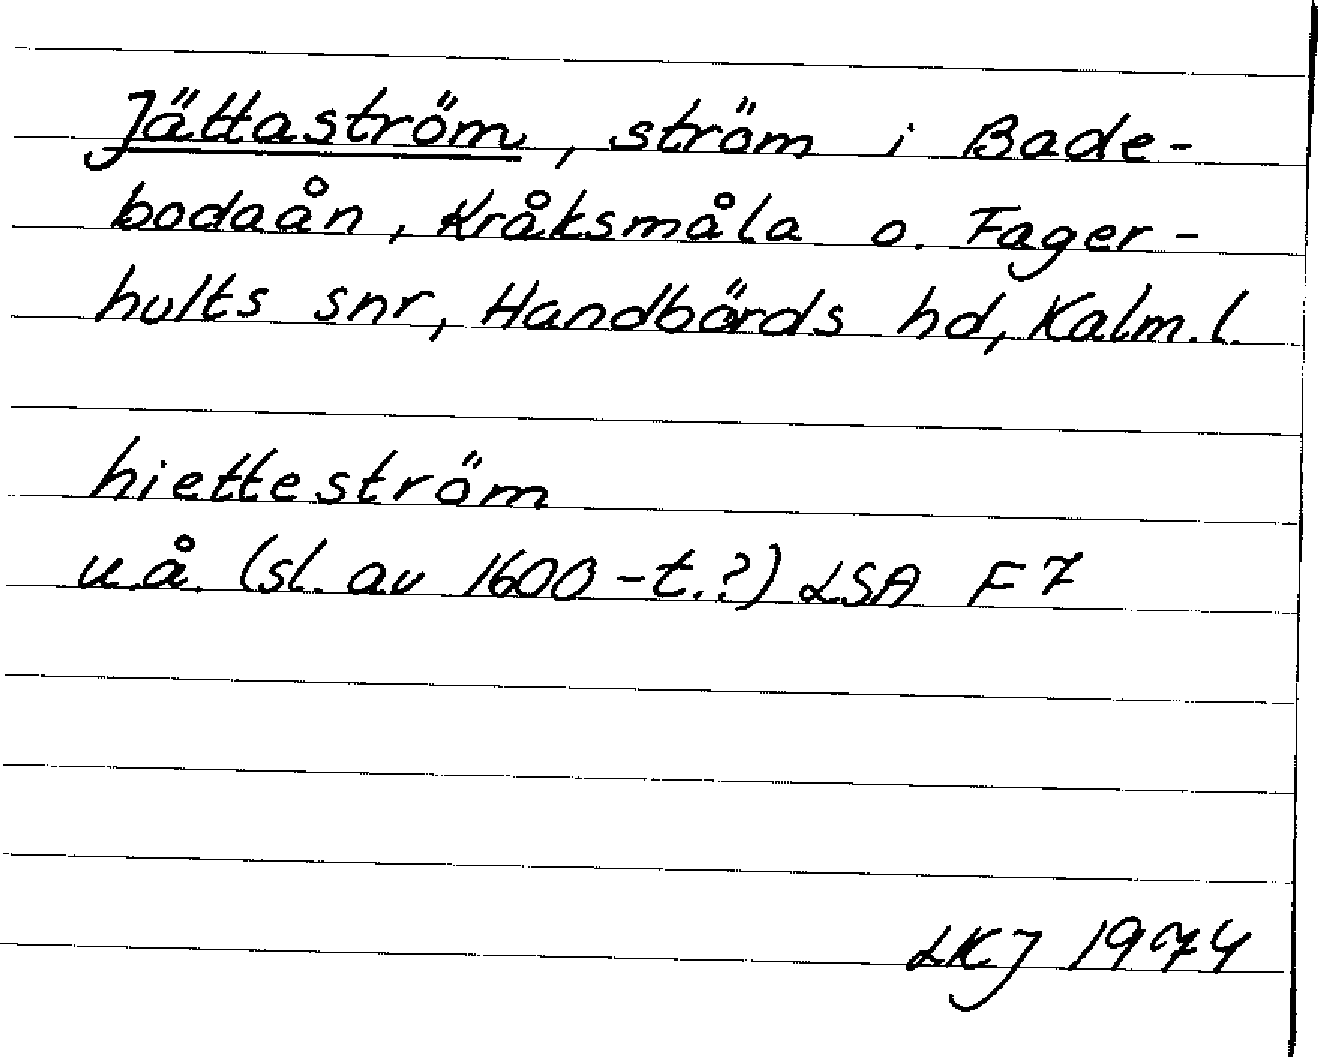 Jättaström, ström i Bade-
bodaån, Kråksmåla o. Fager-
hults snr, Handbörds hd, Kalm. l.
hietteström
u.å. (sl. av 1600-t.?) LSA F7
LKJ 1974